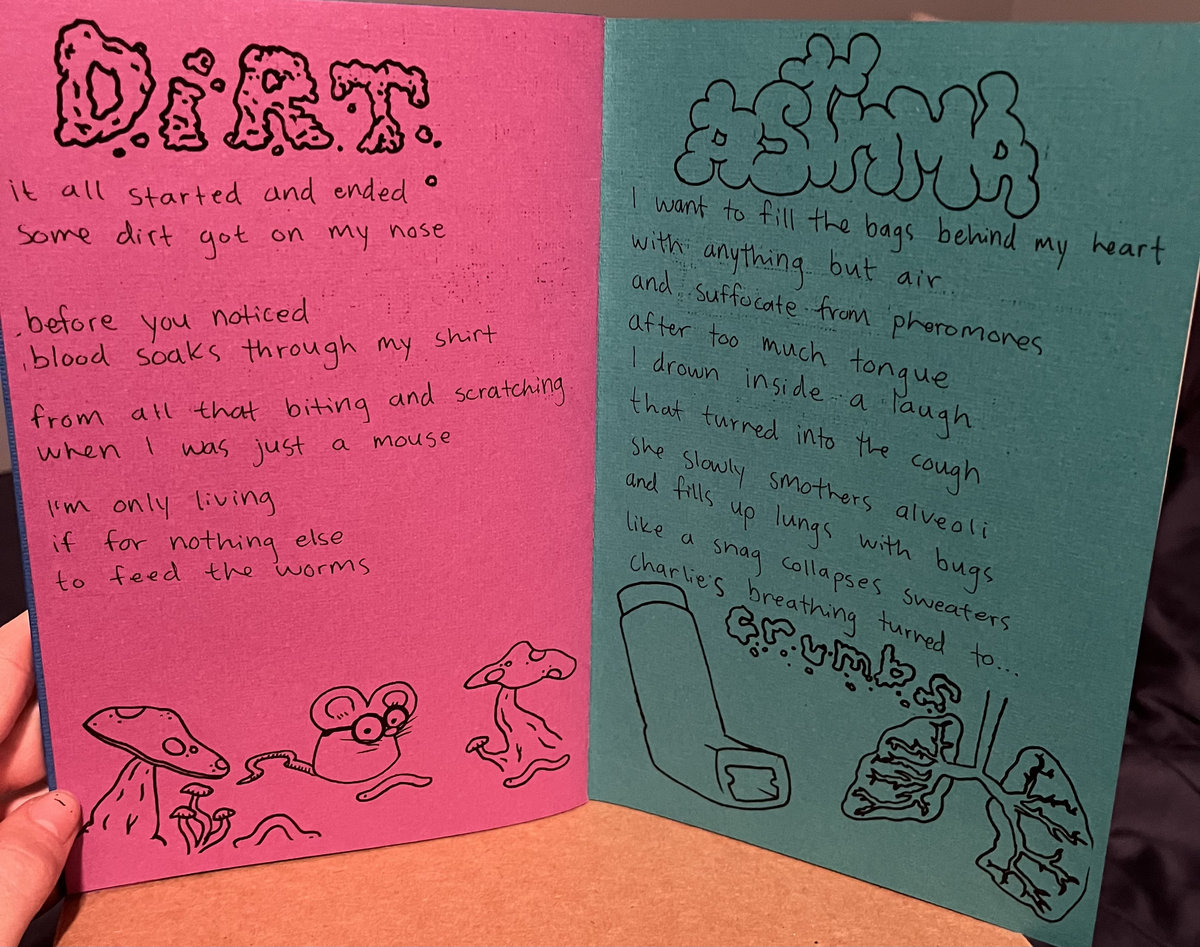 DiRT.
it all started and ended
Some dirt got on my nose
before you noticed
blood soaks through my shirt
from all that biting and scratching
when I was just a mouse
I'm only living
if for nothing else
to feed the worms
ASTHMA
I want to fill the bags behind my heart
with anything but air
and suffocate from pheromones
after too much tongue
I drown inside a laugh
that turned into the cough
she slowly smothers alveoli
and fills up lungs with bugs
like a snag collapses sweaters
Charlie's breathing turned to...
crumbs